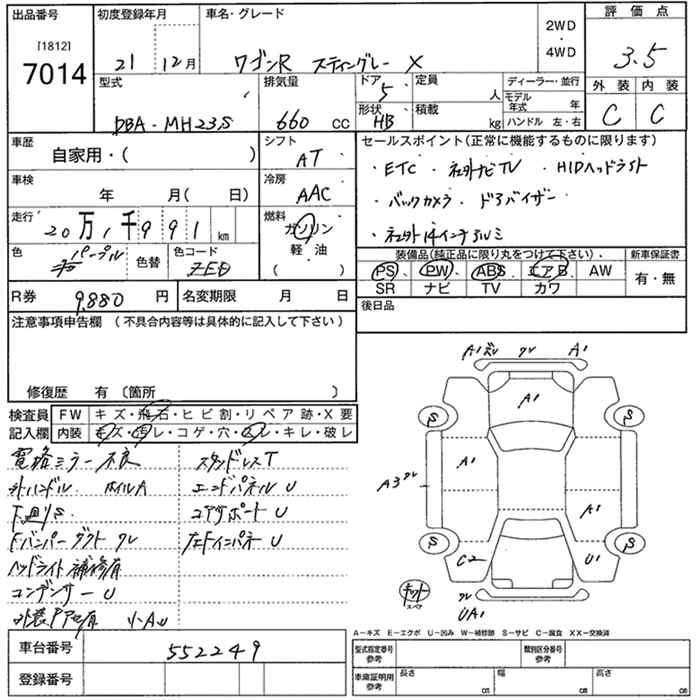 出品番号 初度登録年月 車名・グレード 2WD・4WD 評価点
[1812]
7014 21 12月 ワゴンR スティングレー X 3.5
型式 排気量 ドア 定員 ディーラー・並行 外装 内装
5 人 モデル年式 年
DBA-MH23S 660 CC 形状 HB 積載 kg ハンドル 左・右 C C
車歴 シフト セールスポイント(正常に機能するものに限ります)
自家用・( ) AT ・ETC ・社外ナビTV ・HIDヘッドライト
車検 冷房
年 月( 日) AAC ・バックカメラ ・ドアバイザー
走行 燃料
20万1千991km ガソリン ・社外14インチアルミ
軽油
( )
色 パープル 色替 色コード ZED
装備品(純正品に限り丸をつけて下さい) 新車保証書
PS PW ABS エアB AW 有・無
SR ナビ TV カワ
R券 9,880円 名変期限 月 日 後日品
注意事項申告欄(不具合内容等は具体的に記入して下さい)
修復歴 有(箇所 )
検査員記入欄 FW キズ・飛石・ヒビ割・リペア跡・X要
内装 キズ・汚レ・コゲ・穴・スレ・キレ・破レ
電格ミラー不良 スタンドレスT
外ハンドル ホイルA エンドパネルU
F廻りS コアサポートU
Fバンパー ダクト ワレ 左FインパネU
ヘッドライト補修有
コンデンサーU
外装PアセA有 小AU
A1 ズレ ワレ A1
A1
S S
A1
A3 ワレ
A1
S S
C2 U1
キット
スペア
ワレ
UA1
A-キズ E-エクボ U-凹み W-補修跡 S-サビ C-腐食 XX-交換済
車台番号 552249
登録番号
型式指定番号 参考 類別区分番号 参考
車庫証明用 参考 長さ cm 幅 cm 高さ cm